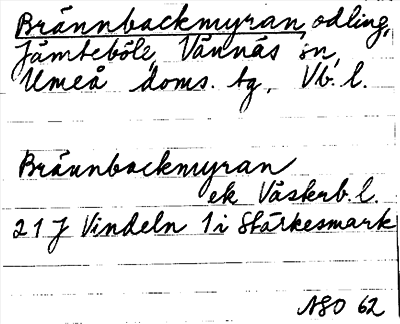 Brännbackmyran, odling,
Jämteböle, Vännäs sn,
Umeå doms. tg, Vb. l.
Brännbackmyran
ek Väskerb. l.
21 J Vindeln 1 i Stärkesmark
NSO 62